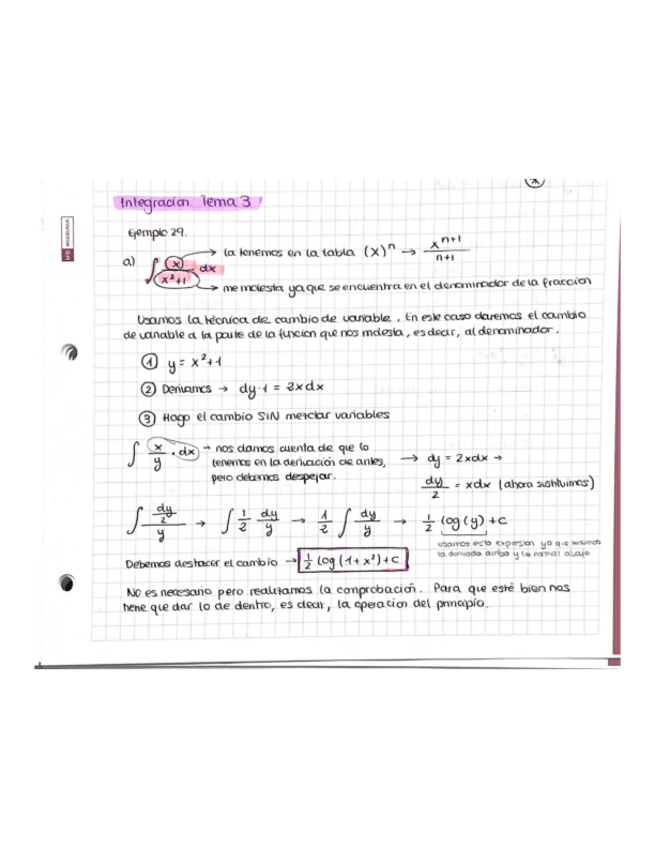 Integración Tema 3
Ejemplo 29.
a) ∫ x / x²+1 dx → la tenemos en la tabla (x)ⁿ → xⁿ⁺¹ / n+1
→ me molesta ya que se encuentra en el denominador de la fracción
Usamos la técnica de cambio de variable. En este caso daremos el cambio
de variable a la parte de la función que nos molesta, es decir, al denominador.
① y = x²+1
② Derivamos → dy·1 = 2xdx
③ Hago el cambio SIN mezclar variables
∫ x/y · dx → nos damos cuenta de que lo
tenemos en la derivación de antes,
pero debemos despejar.
→ dy = 2xdx →
dy/2 = xdx (ahora sustituimos)
∫ dy/2 / y → ∫ 1/2 dy/y → 1/2 ∫ dy/y → 1/2 log(y)+c
usamos esta expresión ya que tenemos
la derivada arriba y la normal abajo
Debemos deshacer el cambio → 1/2 log(1+x²)+c
No es necesario pero realizamos la comprobación. Para que esté bien nos
tiene que dar lo de dentro, es decir, la operación del principio.